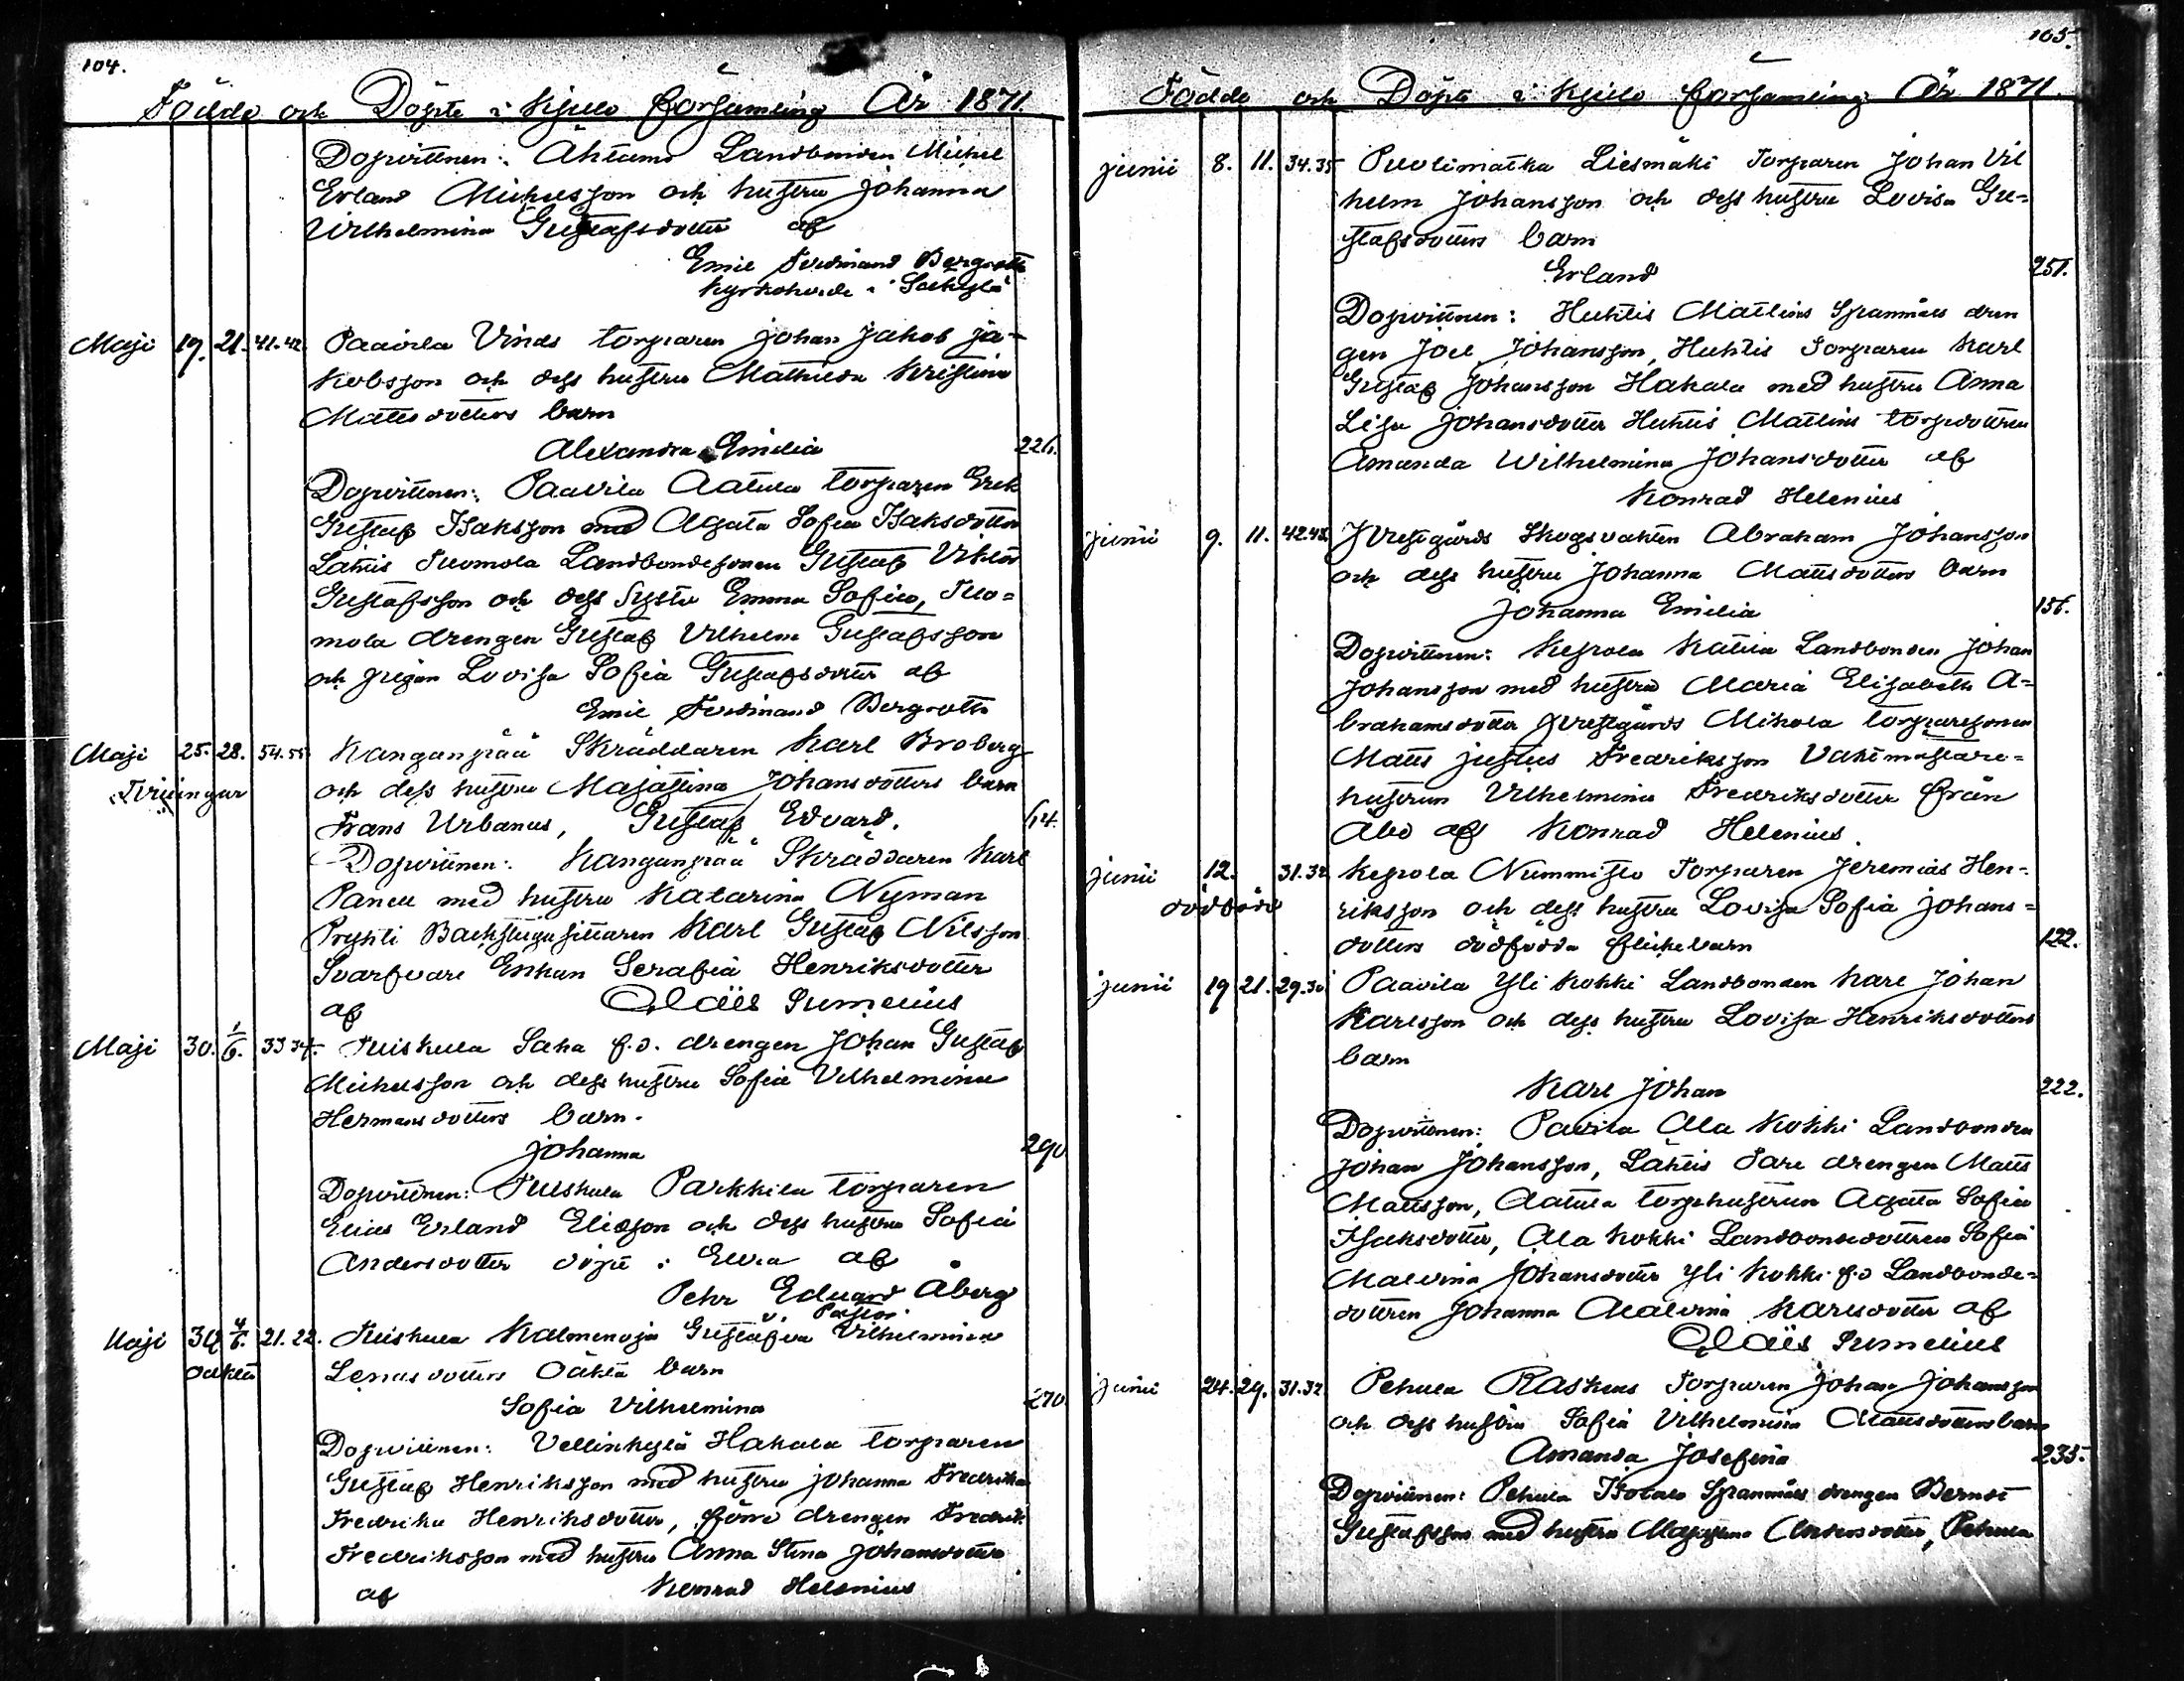 104.
Födde och Döpte i Kjulo församling År 1871
Dopvittnen: Ähtamo Landbonden Michel
Erland Michelsson och hustru Johanna
Wilhelmina Gustafsdotter af
Emil Ferdinand Bergroth
Kyrkoherde i Säkylä
Maji 19. 21. 41.42. Paavila Vinds torparen Johan Jakob Ja-
kobsson och dess hustru Mathilda Kristina
Mattsdotters barn
Alexandra Emilia 226.
Dopvittnen: Paavila Aatula torparen Erik
Gustaf Isaksson med Agata Sofia Isaksdotter
Lähtis Tuomola Landbondesonen Gustaf Viktor
Gustafsson och dess Syster Emma Sofia, Tuo=
mola drengen Gustaf Vilhelm Gustafsson
och pigan Lovisa Sofia Gustafsdotter af
Emil Ferdinand Bergroth
Maji 25. 28. 54.55 Kanganpää Skräddaren Karl Broberg
Tvillingar och dess hustru Majastina Johansdotters barn
Frans Urbanus, Gustaf Edvard. 14.
Dopvittnen: Kanganpää Skräddaren Karl
Paneu med hustru Katarina Nyman
Backstugusittaren Karl Gustaf Nilsson
Svarfvare Enkan Serafia Henriksdotter
af Claës Sumelius
Maji 30. 1/6. 33 34. Tuiskula Saha f.d. drengen Johan Gustaf
Michelsson och dess hustru Sofia Vilhelmina
Hermansdotters barn.
Johanna 290
Dopvittnen: Tuiskula Parkkila torparen
Elias Erland Eliasson och dess hustru Sofia
Andersdotter döpt i Eura af
Pehr Eduard Åberg
v. Pastor
Maji 30 4/6. 21.22. Tuiskula Kalmenoja Gustafva Vilhelmina
oäkta Lenasdotters Oäkta barn
Sofia Vilhelmina 270.
Dopvittnen: Vellinkylä Hakala torparen
Gustaf Henriksson med hustru Johanna Fredrika
Fredrika Henriksdotter, förre drengen Fredrik
Fredriksson med hustru Anna Stina Johansdotter
af Konrad Helenius
105.
Födde och Döpte i Kjulo församling År 1871.
Junii 8. 11. 34.35 Puolimatka Liesmäki Torparen Johan Vil
helm Johansson och dess hustru Lovisa Gu=
stafsdotters barn
Erland 251.
Dopvittnen: Huhtis Mattins Spanmåls dren
gen Joel Johansson, Huhtis Torparen Karl
Gustaf Johansson Hakala med hustru Anna
Lisa Johansdotter Huhtis Mattins torpdottren
Amanda Wilhelmina Johansdotter af
Konrad Helenius
Junii 9. 11. 42.43. Prestgårds Skogsvakten Abraham Johansson
och dess hustru Johanna Mattsdotters barn
Johanna Emilia 151.
Dopvittnen: Kepola Kattila Landbonden Johan
Johansson med hustru Maria Elisabeth A=
brahamsdotter Prestgårds Mikola torparesonen
Matts Justus Fredriksson Vaktmästare=
hustrun Vilhelmina Fredriksdotter från
Åbo af Konrad Helenius.
Junii 12. 31.32 Kepola Nummisto Torparen Jeremias Hen=
dödbörd riksson och dess hustru Lovisa Sofia Johans=
dotters dödfödda flickebarn 122.
Junii 19 21. 29.30. Paavila Yli Kokki Landbonden Karl Johan
Karlsson och dess hustru Lovisa Henriksdotters
barn
Karl Johan 222.
Dopvittnen: Pavila Ala Kokki Landbonden
Johan Johansson, Lähtis Tare drengen Matts
Mattsson, Aatula torpehustrun Agata Sofia
Isaksdotter, Ala Kokki Landbondedottren Sofia
Malvina Johansdotter Yli Kokki f.d Landbonde=
dottren Johanna Malvina Karlsdotter af
Claës Sumelius
Junii 24. 29. 31.32 Pehula Raskus Torparen Johan Johansson
och dess hustru Sofia Vilhelmina Mattsdotters barn
Amanda Josefina 235.
Dopvittnen: Pehula Isotalo Spanmåls drengen Berndt
Gustafsson med hustru Majastina Andersdotter, Pehula